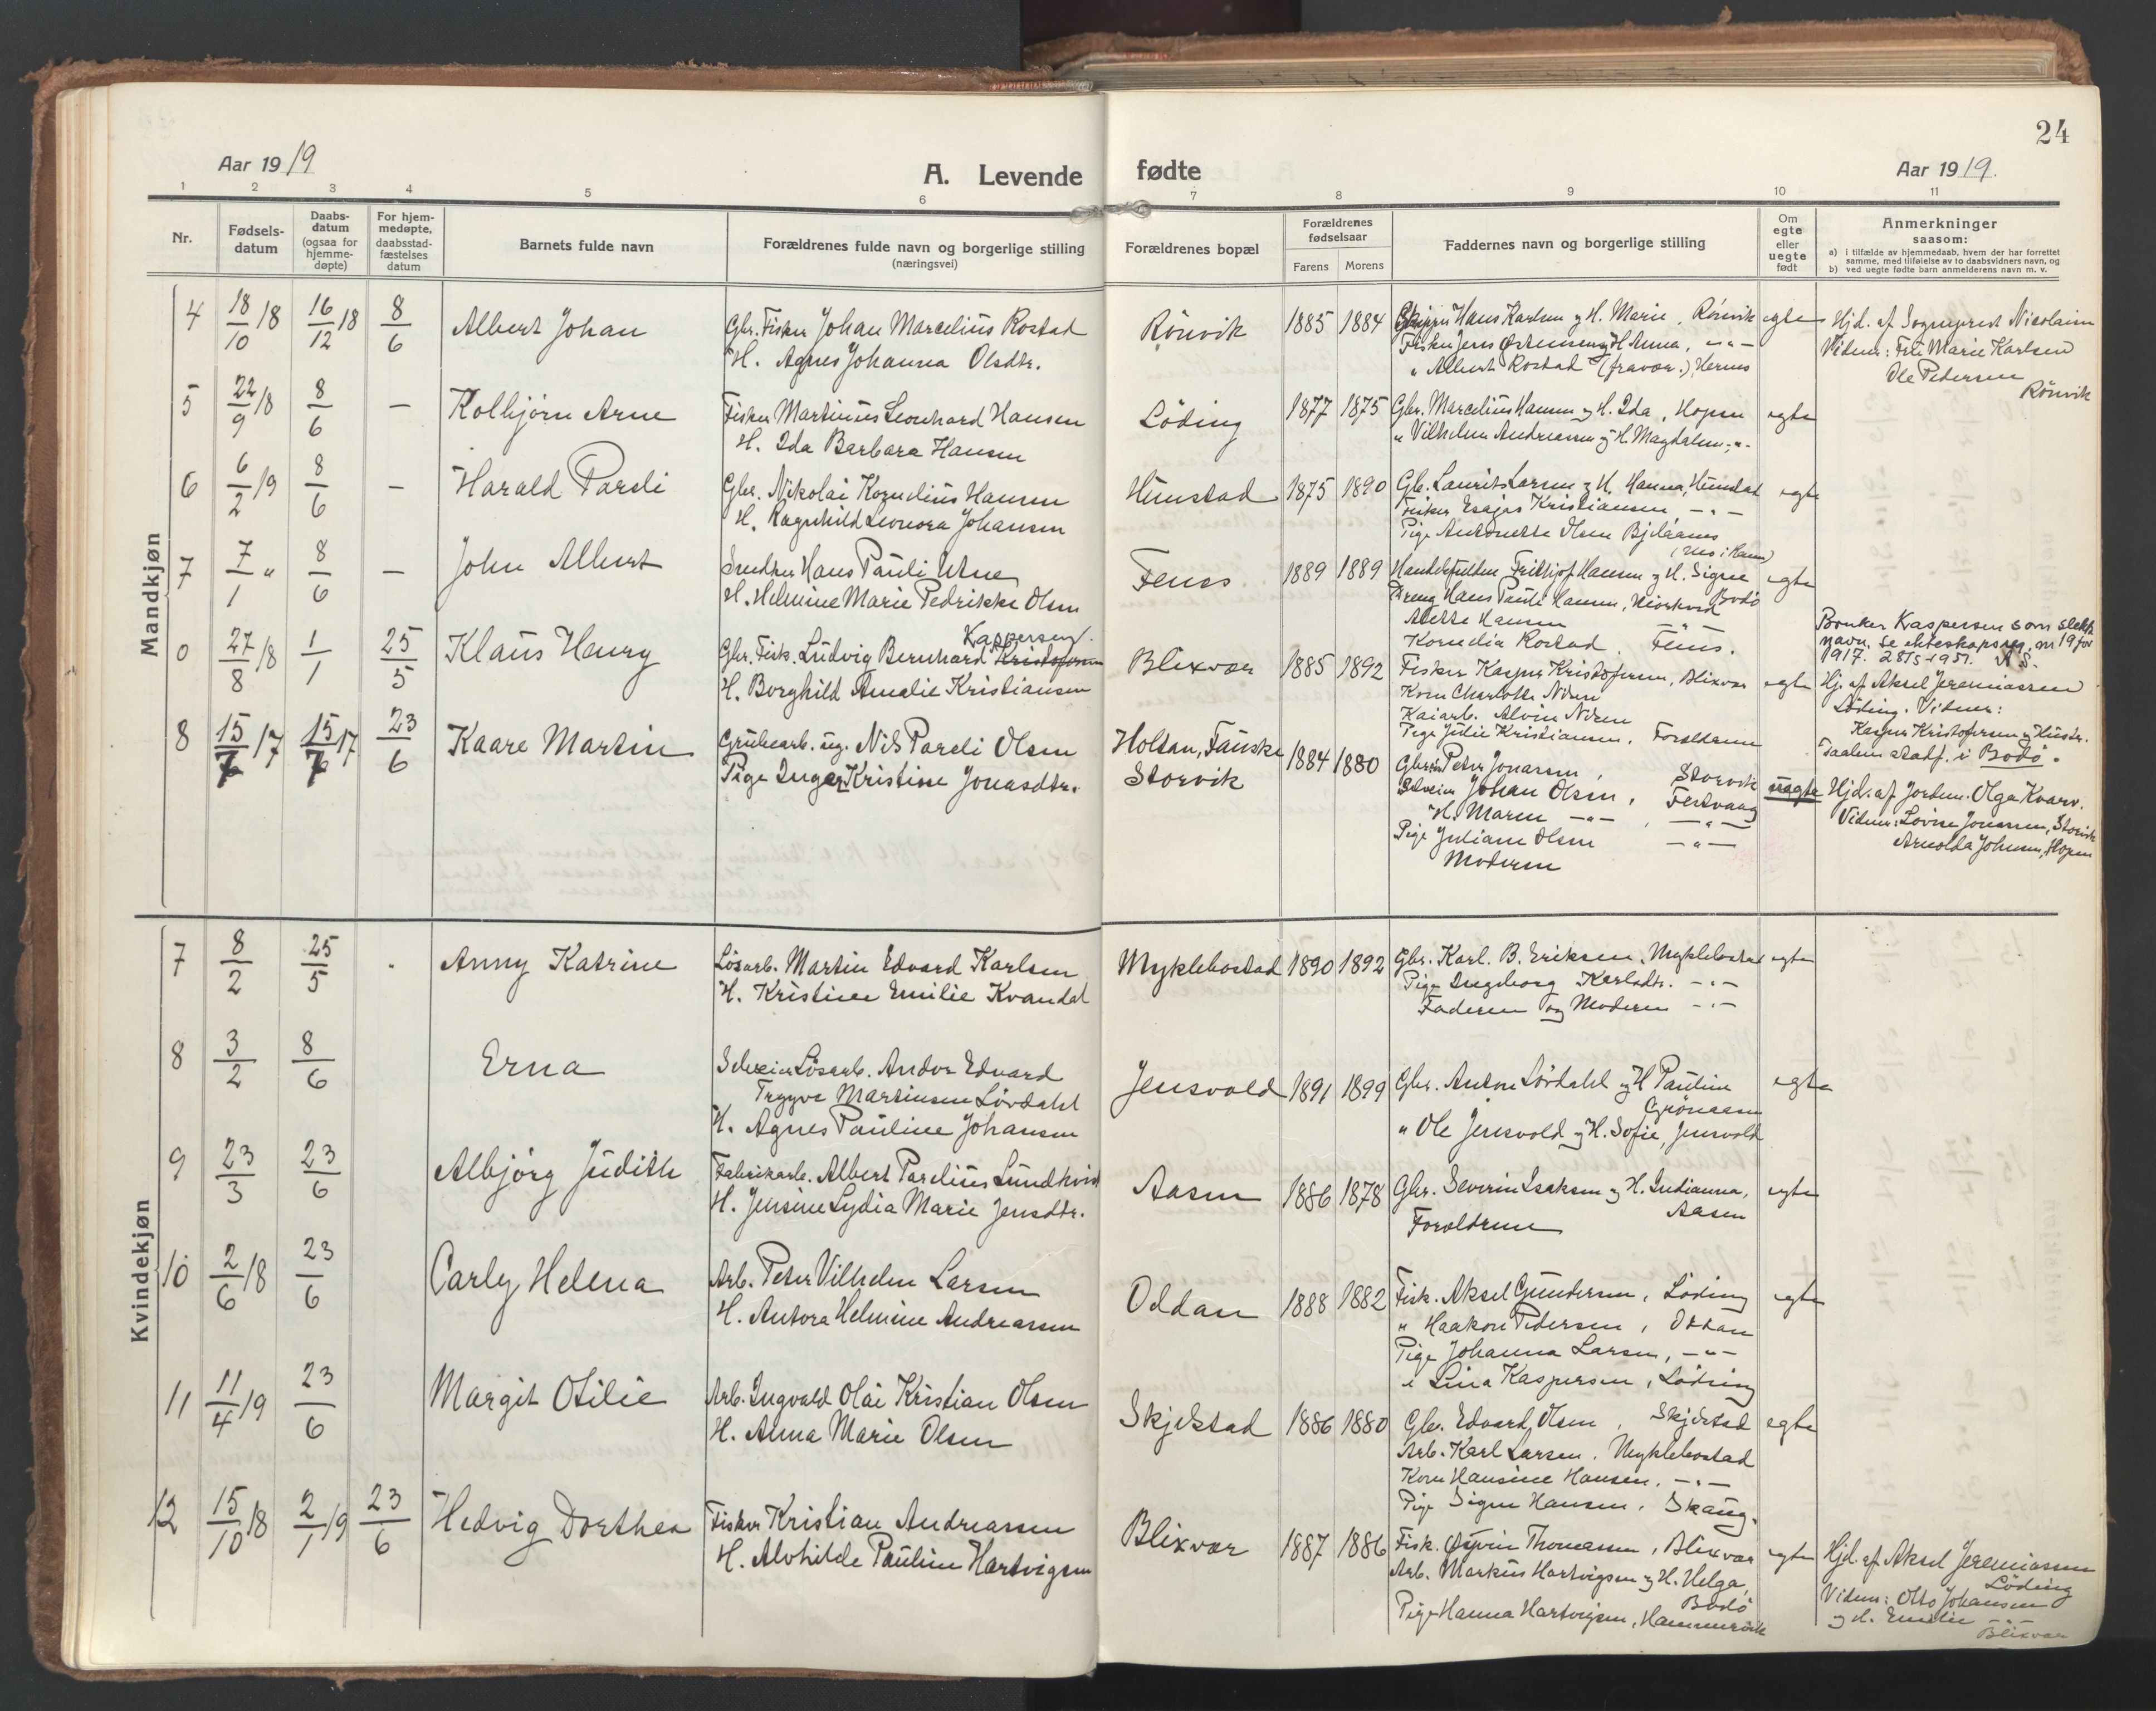 24
Aar 1919
A. Levende fødte
Aar 1919.
1 2 3 4 5 6 7 8 9 10 11
Nr.
Fødsels-
datum
Daabs-
datum
(ogsaa for
hjemme-
døpte)
For hjem-
medøpte,
daabsstad-
fæstelses
datum
Barnets fulde navn
Forældrenes fulde navn og borgerlige stilling
(næringsvei)
Forældrenes bopæl
Forældrenes
fødselsaar
Farens Morens
Faddernes navn og borgerlige stilling
Om
egte
eller
uegte
født
Anmerkninger
saasom:
a) i tilfælde av hjemmedaab, hvem der har forrettet
samme, med tilføielse av to daabsvidners navn, og
b) ved uegte fødte barn anmelderens navn m. v.
Mandkjøn
4 18/10 18 16/12 18 8/6 Albert Johan
Gbr. Fisker Johan Marcelius Rostad
H. Agnes Johanna Olsdtr.
Rönvik 1885 1884
Hans Karlsen og H. Marie, Rönvik
Fisker Jens Østensen og H. Anna, -"-
" Albert Rostad (fravær.), Hernes
egte
Hjd. af Sogneprest Nicolaisen
Vidner: Fru Marie Karlsen
Ole Pedersen
Rönvik
5 22/9 18 8/6 — Kolbjörn Arne
Fisker Martinus Leonhard Hansen
H. Ida Barbara Hansen
Löding 1877 1875
Gbr. Marcelius Hansen og H. Ida, Hopen
" Vilhelm Andreassen og H. Magdalen, -"-
egte
6 6/2 19 8/6 — Harald Pareli
Gbr. Nikolai Kornelius Hansen
H. Ragnhild Leonora Johansen
Hunstad 1875 1890
Gbr. Laurits Larsen og H. Hanna, Hunstad
Fisker Esajas Kristiansen -"-
Pige Antonette Olsen Bjelaanes
egte
7 7/1 " 8/6 — John Albert
Snedker Hans Pauli Utne
H. Helmine Marie Pedrikke Olsen
Fenes 1889 1889
Fridtjof Hansen og H. Signe
Bodö
Dreng Hans Pauli Hansen,
Alette Hansen -"-
Kornelia Rostad, Fenes.
egte
0 27/8 18 1/1 25/5 Klaus Henry
Kaspersen.
Gbr. Fisk. Ludvig Bernhard Kristofersen
H. Borghild Amalie Kristiansen
Blixvær 1885 1892
Fisker Kasper Kristofersen, Blixvær
Kone Charlotte Nören
Kaiarb. Alvin Nören
Pige Julie Kristiansen. Forældrene
egte
Bruker Kaspersen som slekts
navn. Se ekteskapsreg. nr 19 for
1917. 28/5 1951. A S.
Hj. af Aksel Jeremiassen
Löding. Vidner:
Kasper Kristofersen og Hustr.
Daaben stadf. i Bodö.
8 15/7 17 15/7 17 23/6 Kaare Martin
Grubearb. ug. Nils Pareli Olsen
Pige Inger Kristine Jonasdtr.
Holtan, Fauske
Storvik
1884 1880
Gbr. Peter Jonassen, Storvik
Johan Olsen, Festvaag
H. Maren -"-, -"-
Pige Juliane Olsen -"-
Moderen
uegte
Hjd. af Jordm. Olga Kvarv.
Vidner: Lovise Jonassen, Storvik
Arnolda Johnsen, Hopen
Kvindekjøn
7 8/2 25/5 . Anny Katrine
Løsarb. Martin Edvard Karlsen
H. Kristine Emilie Kvandal
Myklebostad 1890 1892
Gbr. Karl. B. Eriksen, Myklebostad
Pige Ingeborg Karlsdtr. -"-
Faderen og Moderen -"-
egte
8 3/2 8/6 Erna
Løsarb. Andor Edvard
Trygve Martinsen Lövdahl
H. Agnes Pauline Johansen
Jensvold 1891 1899
Gbr. Anton Lövdahl og H. Pauline
Grönaasen
" Ole Jensvold og H. Sofie, Jensvold
egte
9 23/3 23/6 Albjörg Judith
Fabrikarb. Albert Parelius Lundkvist
H. Jensine Lydia Marie Jensdtr.
Aasen 1886 1878
Gbr. Severin Isaksen og H. Indianna,
Aasen
Forældrene
egte
10 2/6 18 23/6 Carly Helena
Arb. Peter Vilhelm Larsen
H. Antora Helmine Andreassen
Oddan 1888 1882
Fisk. Aksel Gundersen, Löding
" Haakon Pedersen, Oddan
Pige Johanna Larsen, -"-
" Lina Kaspersen, Löding
egte
11 11/4 19 23/6 Margit Otilie
Arb. Ingvald Olai Kristian Olsen
H. Anna Marie Olsen
Skjelstad 1886 1880
Gbr. Edvard Olsen, Skjelstad
Arb. Karl Larsen. Myklebostad
Kone Hansine Hansen, -"-
Pige Signe Hansen, Skaug.
egte
12 15/10 18 2/1 19 23/6 Hedvig Dorthea
Fisker Kristian Andreassen
H. Alvhilde Pauline Hartvigsen
Blixvær 1887 1886
Fisk. Øivin Thomassen, Blixvær
Arb. Markus Hartvigsen og H. Helga,
Bodö
Pige Hanna Hartvigsen, Hammervik
egte
Hjd. af Aksel Jeremiassen
Löding
Vidner: Otto Johansen
og H. Emilie -"-
Blixvær